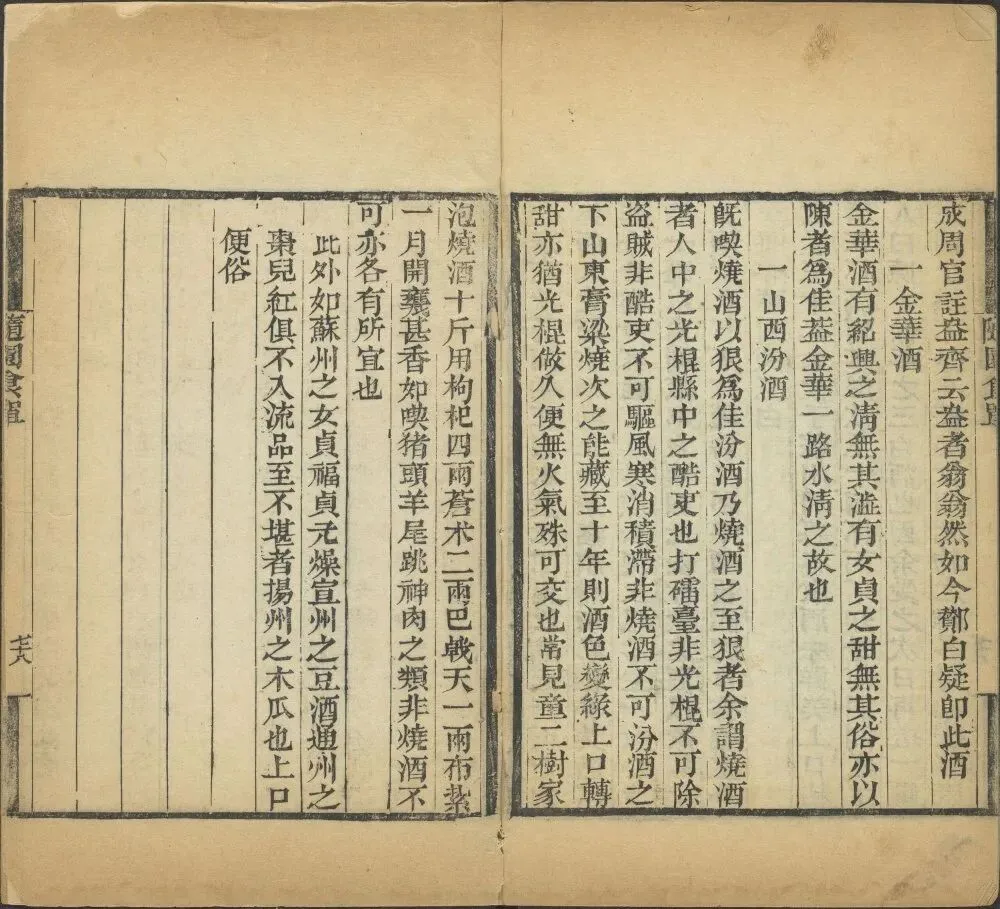 隨園食單
成周官註盎齊云盎者翁翁然如今酇白疑卽此酒
一金華酒
金華酒有紹興之清無其澁有女貞之甜無其俗亦以
陳者爲佳葢金華一路水清之故也
一山西汾酒
旣喫燒酒以狠爲佳汾酒乃燒酒之至狠者余謂燒酒
者人中之光棍縣中之酷吏也打礌臺非光棍不可除
盜賊非酷吏不可驅風寒消積滯非燒酒不可汾酒之
下山東膏粱燒次之能藏至十年則酒色變綠上口轉
甜亦猶光棍做久便無火氣殊可交也常見童二樹家
泡燒酒十斤用枸杞四兩蒼术二兩巴戟天一兩布紮
一月開甕甚香如喫猪頭羊尾跳神肉之類非燒酒不
可亦各有所宜也
此外如蘇州之女貞福貞元燥宣州之豆酒通州之
棗兒紅俱不入流品至不堪者揚州之木瓜也上口
便俗
隨園食單
七八